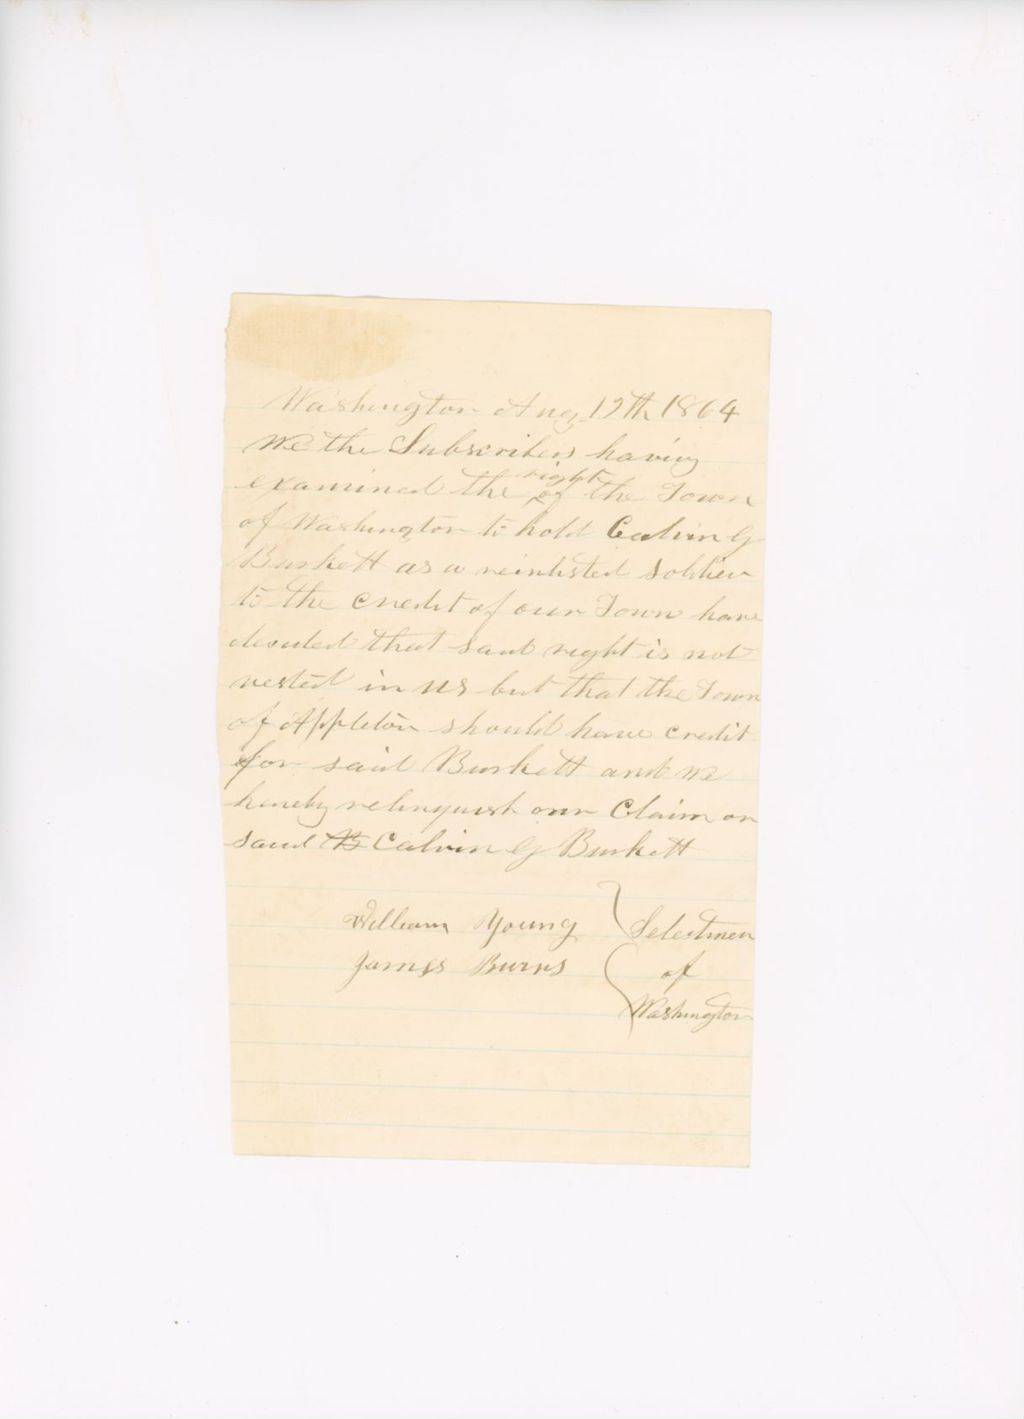 Washington Aug 19th 1864
We the Subscribers having
examined the right of the Town
of Washington to hold Calvin G
Burkett as a reinlisted soldier
to the credit of our Town have
decided that said right is not
vested in us but that the Town
of Appleton should have credit
for said Burkett and we
hereby relinquish our Claim on
said B Calvin G Burkett
William Young } Selectmen
James Burns } of
Washington